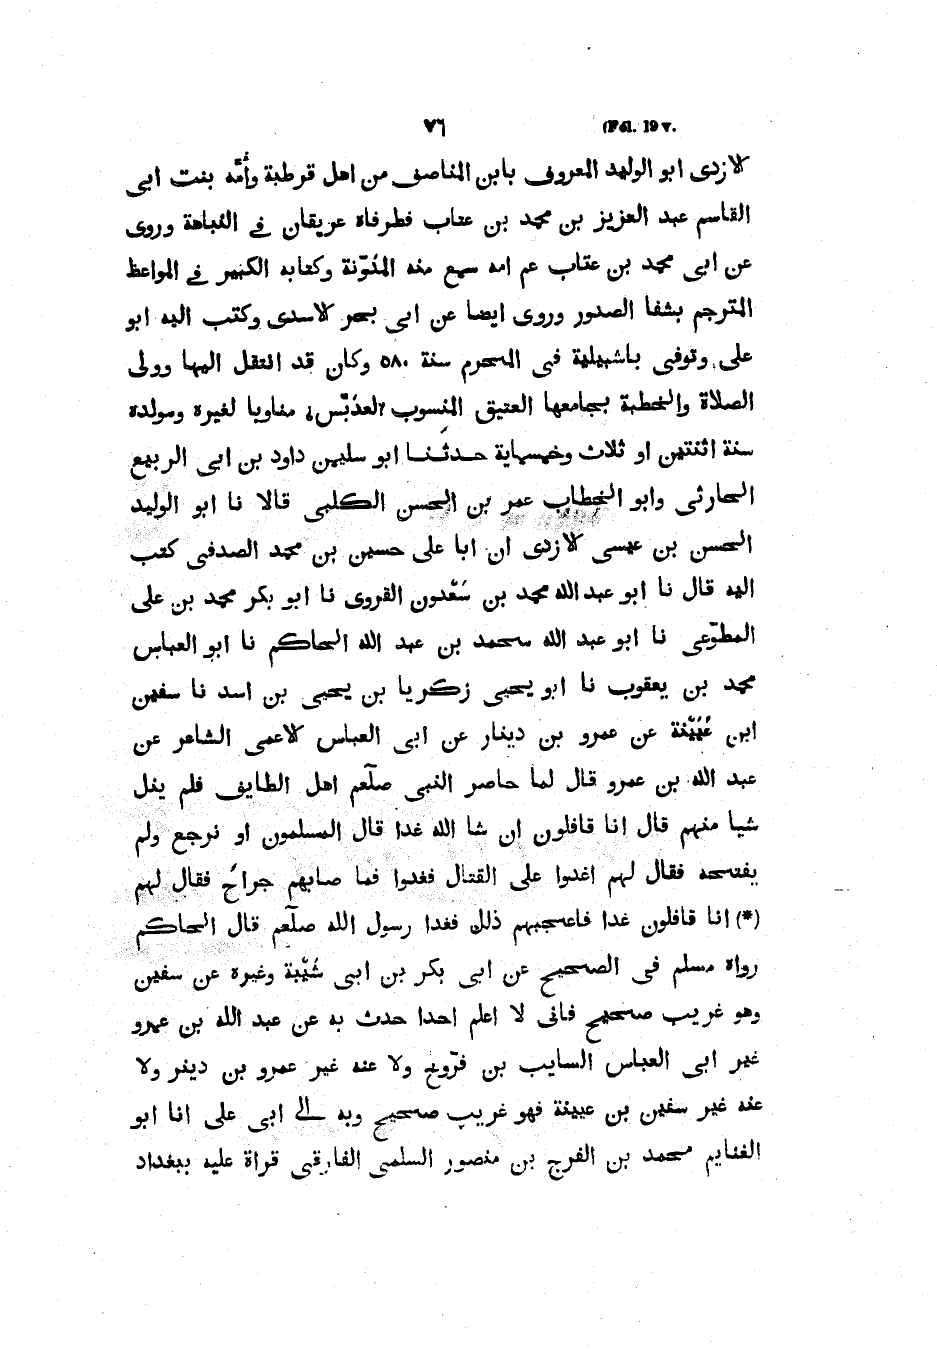 ٧٦ (Fol. 19 v.
لازدى ابو الوليد المعروف بابن المناصف من اهل قرطبة وأُمّه بنت ابى
القاسم عبد العزيز بن محمد بن عتاب فطرفاه عريقان فى النباهة وروى
عن ابى محمد بن عتاب عم امه سمع منه المدوّنة وكتابه الكبير فى المواعظ
المترجم بشفا الصدور وروى ايضا عن ابى بحر لاسدى وكتب اليه ابو
على وتوفى باشبيلية فى المحرم سنة ٥٨٠ وكان قد انتقل اليها وولى
الصلاة والخطبة بجامعها العتيق المنسوب لعدبّس مناوبا لغيره ومولده
سنة اثنتين او ثلاث وخمسماية حدثنا ابو سليمن داود بن ابى الربيع
الحارثى وابو الخطاب عمر بن الحسن الكلبى قالا نا ابو الوليد
الحسن بن عيسى لازدى ان ابا على حسين بن محمد الصدفى كتب
اليه قال نا ابو عبد الله محمد بن سَعْدون القروى نا ابو بكر محمد بن على
المطوّعى نا ابو عبد الله محمد بن عبد الله الحاكم نا ابو العباس
محمد بن يعقوب نا ابو يحيى زكريا بن يحيى بن اسد نا سفين
ابن عُيَيْنة عن عمرو بن دينار عن ابى العباس لاعمى الشاعر عن
عبد الله بن عمرو قال لما حاصر النبى صلّعم اهل الطايف فلم ينل
شيا منهم قال انا قافلون ان شا الله غدا قال المسلمون او نرجع ولم
يفتتحه فقال لهم اغدوا على القتال فغدوا فما صابهم جراحٌ فقال لهم
(*) انا قافلون غدا فاعجبهم ذلك فغدا رسول الله صلّعم قال الحاكم
رواه مسلم فى الصحيح عن ابى بكر بن ابى شَيْبة وغيره عن سفين
وهو غريب صحيح فانى لا اعلم احدا حدث به عن عبد الله بن عمرو
غير ابى العباس السايب بن فرّوخ ولا عنه غير عمرو بن دينر ولا
عنه غير سفين بن عيينة فهو غريب صحيح وبه الى ابى على انا ابو
الغنايم محمد بن الفرج بن منصور السلمى الفارقى قراة عليه ببغداد